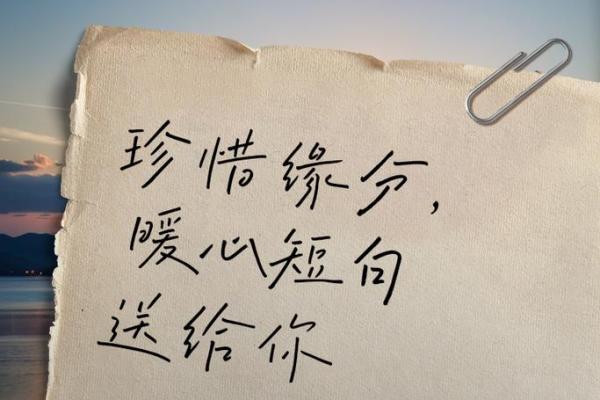 珍惜缘分，
暖心短句
送给你